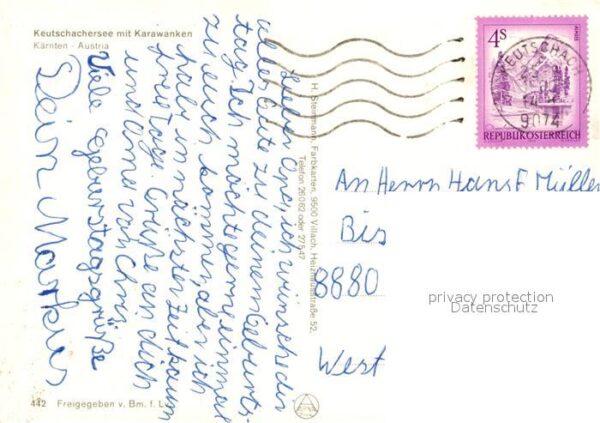 Keutschachersee mit Karawanken
Kärnten - Austria
Lieber Opa, ich wünsche dir
alles Gute zu deinem Geburts-
tag. Ich möchte gerne einmal
zu euch kommen, aber ich
hab in nächster Zeit kaum
freie Tage. Grüße an dich
und Oma von Chris
Viele Geburtstagsgrüße
Dein Markus
H. Stemmann, Farbkarten, 9500 Villach, Heizhausstraße 52,
Telefon 26062 oder 27547
4S
REPUBLIK ÖSTERREICH
KEUTSCHACH
9074
An Herrn Hans F Müller
Bis
8880
West
privacy protection
Datenschutz
442 Freigegeben v. Bm. f. L